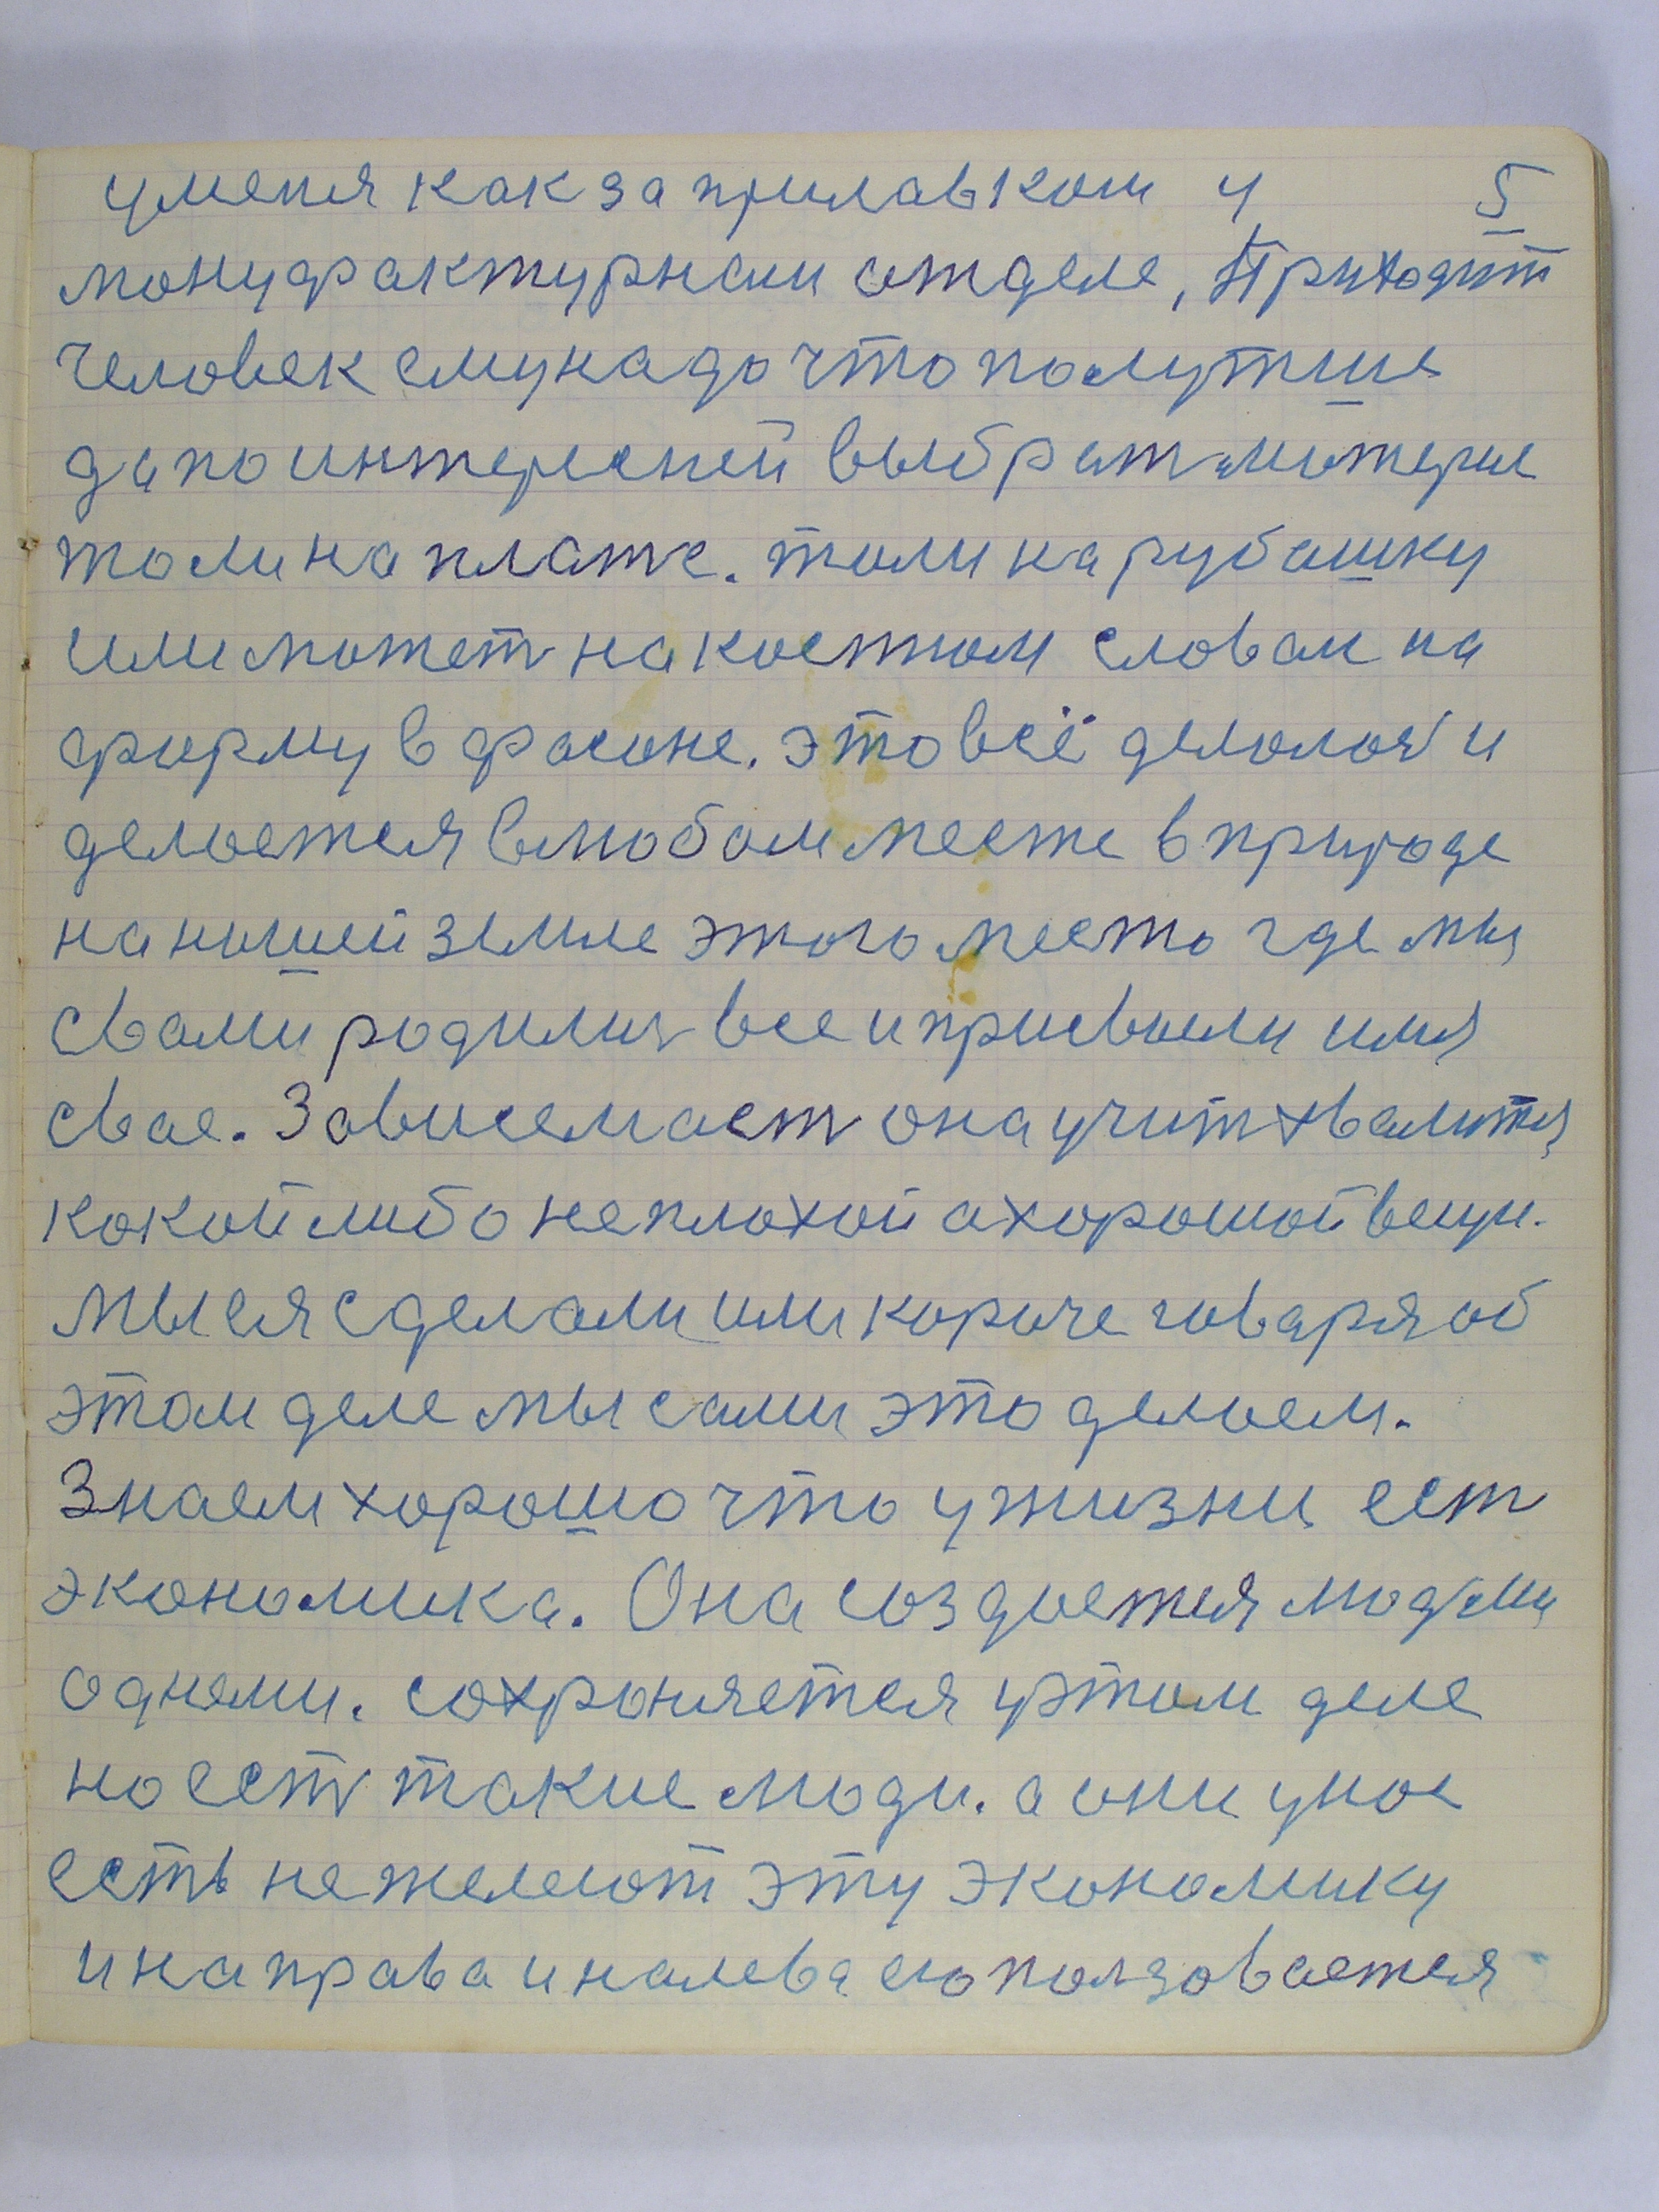 у меня как за прилавком у 5
монуфактурном отделе, Приходит
человек ему надо что полутше
да по интересней выбрат материе
то ли на плате. то ли на рубашку
или может на костюм словам на
форму в фасоне. это всё делолося и
делоется в любом месте в природе
на нашей земле этого место где мы
с вами родилис все и присвоели имя
свае. Зависемаст она учит хвалится
кокой либо не плохой а хорошой вещи.
мы ея сделали или короче говаря об
этом деле мы сами это делоем.
Знаем хорошо что у жизни ест
экономика. Она создоется людми
одноми. сохроняется у этом деле
но ест такие люди. а они у нос
есть не желеют эту экономику
и на права и на лева ею ползовается